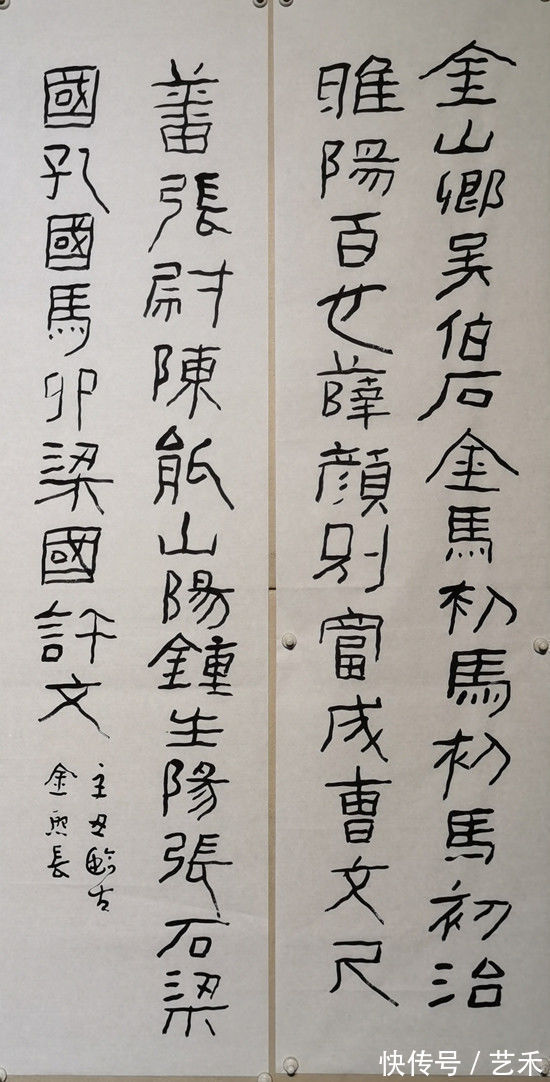 金山鄉吴伯石金馬朸馬朸馬初治
睢陽百七薛顏別富成曹文尺
蕃張尉陳觝山陽鍾生陽張石梁
國孔國馬卯梁國許文
金熙長
快传号／艺禾